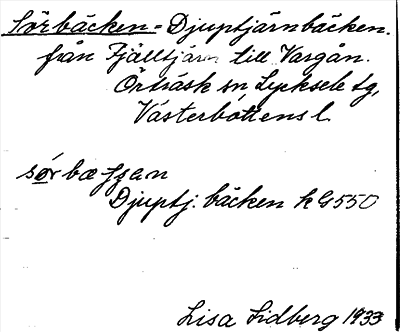 Sörbäcken = Djuptjärnbäcken.
från Fjälltjärn till Vargån.
Örträsk sn, Lycksele tg,
Västerbottens l.
Djuptj. bäcken k G550
Lisa Lidberg 1933